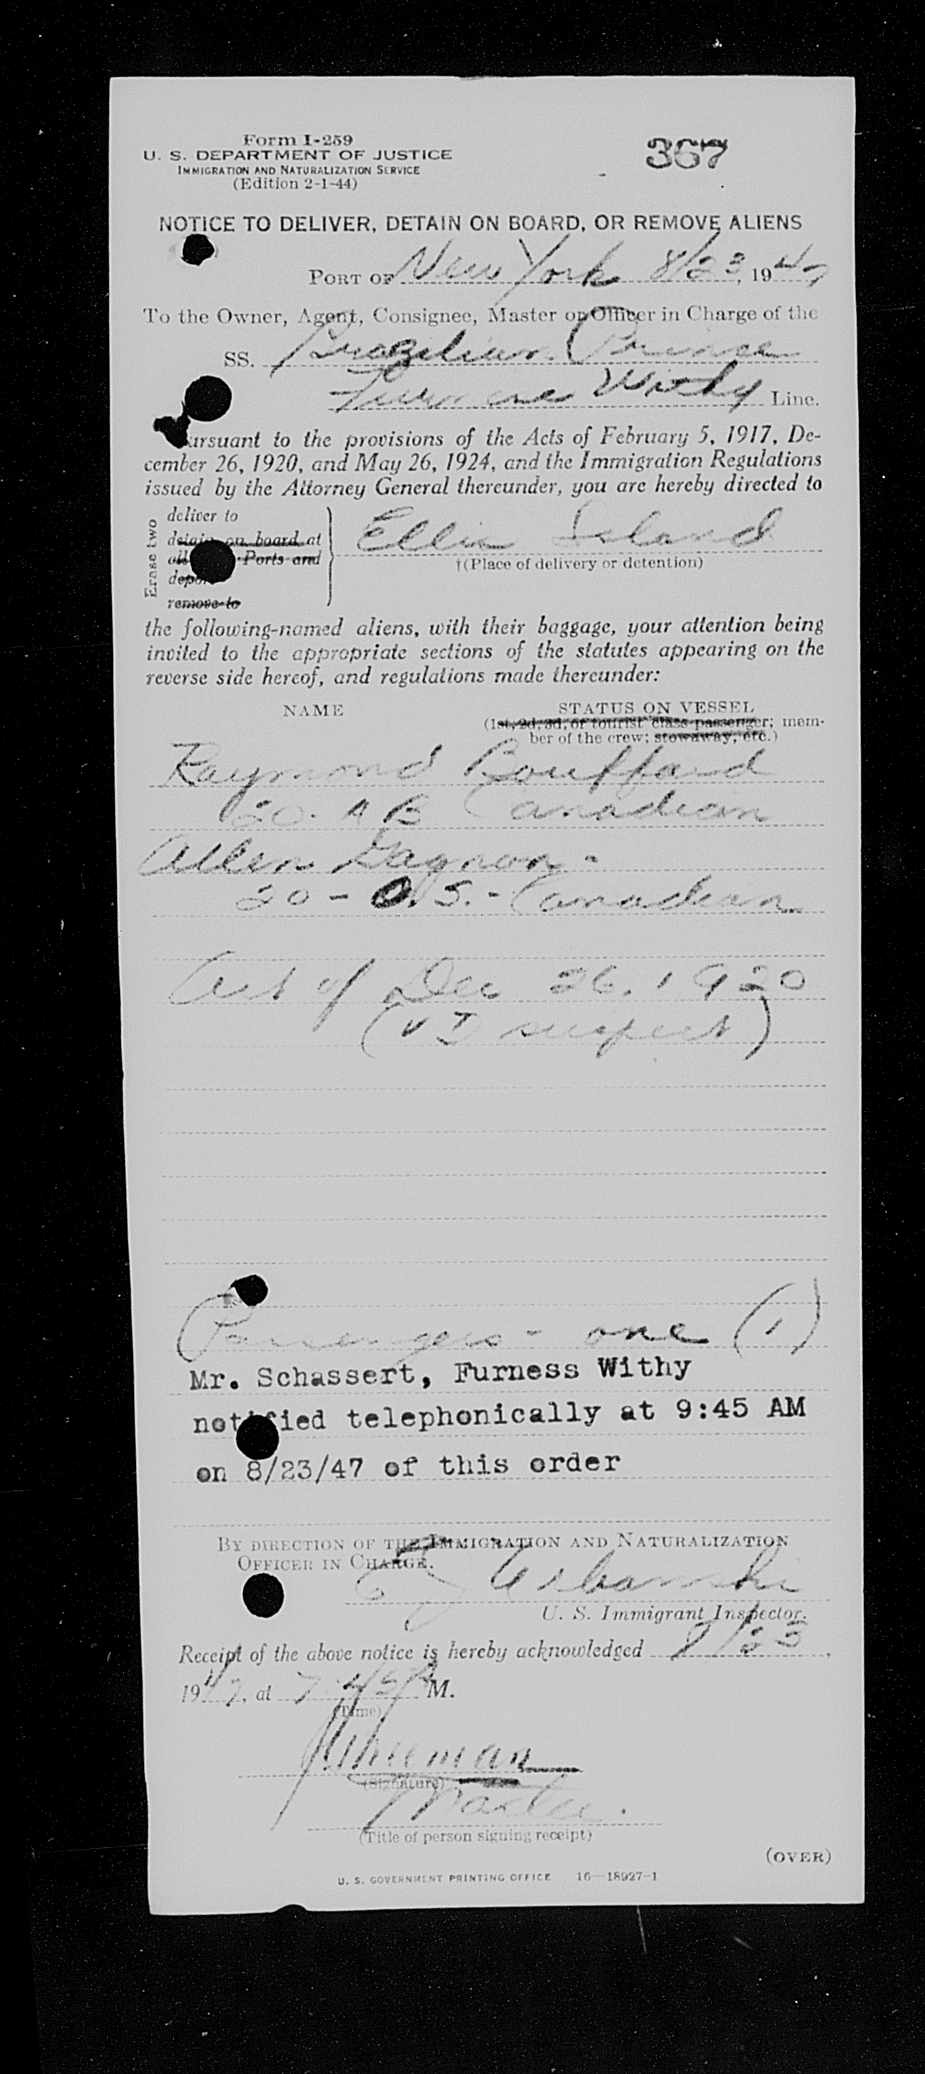 Form I-259
U. S. DEPARTMENT OF JUSTICE
IMMIGRATION AND NATURALIZATION SERVICE
(Edition 2-1-44)
367
NOTICE TO DELIVER, DETAIN ON BOARD, OR REMOVE ALIENS
PORT OF New York 8/23, 1947
To the Owner, Agent, Consignee, Master or Officer in Charge of the
SS. Brazilian Prince
Furness Withy Line.
Pursuant to the provisions of the Acts of February 5, 1917, De-
cember 26, 1920, and May 26, 1924, and the Immigration Regulations
issued by the Attorney General thereunder, you are hereby directed to
Erase two
deliver to
detain on board at
all Ports and
deport
remove to
Ellis Island
†(Place of delivery or detention)
the following-named aliens, with their baggage, your attention being
invited to the appropriate sections of the statutes appearing on the
reverse side hereof, and regulations made thereunder:
NAME STATUS ON VESSEL
(1st, 2d, 3d, or tourist class passenger; mem-
ber of the crew; stowaway, etc.)
Raymond Bouffard
20. AB Canadian
Allen Gagnon -
20 - O.S. - Canadian
Act of Dec 26, 1920
(VD suspect)
Passengers - one (1)
Mr. Schassert, Furness Withy
notified telephonically at 9:45 AM
on 8/23/47 of this order
BY DIRECTION OF THE IMMIGRATION AND NATURALIZATION
OFFICER IN CHARGE.
U. S. Immigrant Inspector.
Receipt of the above notice is hereby acknowledged 8/23,
1947, at 7 45 P M.
(Time)
(Signature)
Master.
(Title of person signing receipt)
(OVER)
U. S. GOVERNMENT PRINTING OFFICE 16—18927-1